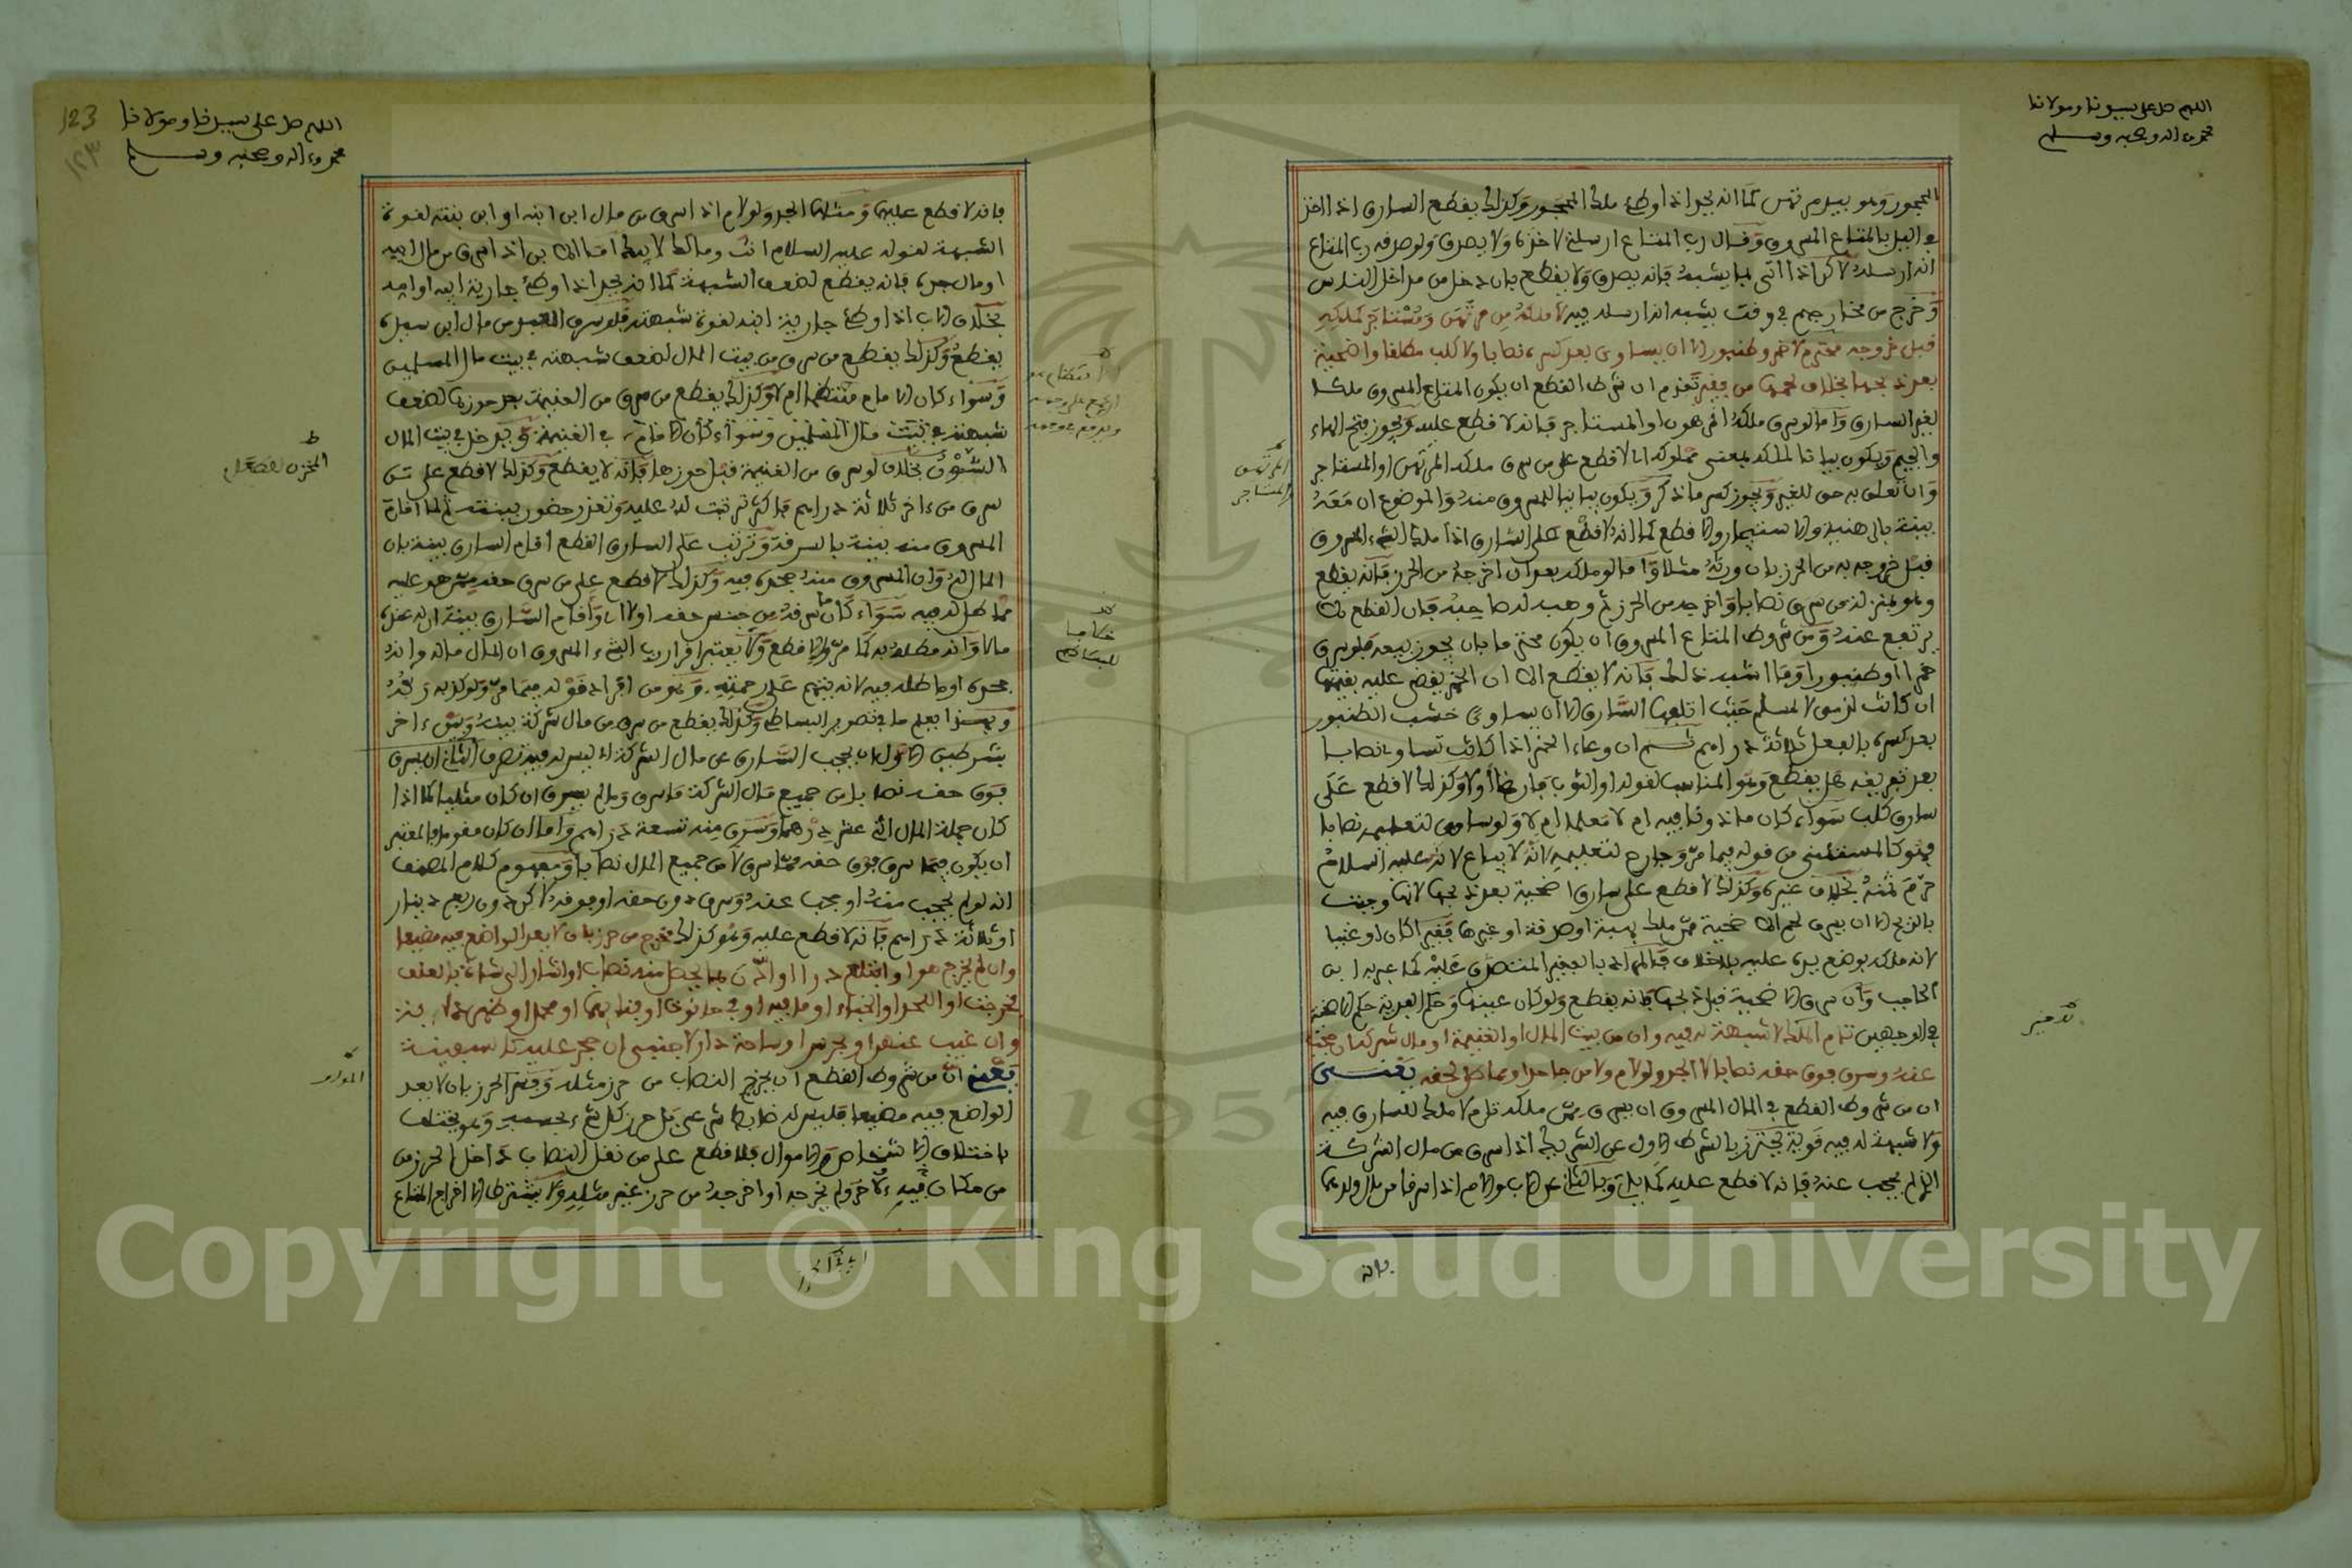 اللهم صل على سيدنا ومولانا
محمد وءاله وصحبه وسلم
المحجور وهو بيد مرتهن كما انه يحد اذا وطئ ملك المحجور وكذلك يقطع السارق اذا اخذ
في الليل بالمتاع المسروق وقال رب المتاع ارسلته لاخذه ولا يصدق ولو صدقه رب المتاع
انه ارسله لاكن اذا اتى بما يشبه فانه يصدق ولا يقطع بان دخل من مداخل الناس
وخرج من مخارجهم في وقت يشبه انه ارسله فيه لا ملكه من مرتهن ومستاجر كملكه
قبل خروجه محترم لا خمر وطنبور الا ان يساوي بعد كسره نصابا ولا كلب مطلقا واضحية
بعد ذبحها بخلاف لحمها من فقير تقدم ان شرط القطع ان يكون المتاع المسروق ملكا
لغير السارق واما لو سرق ملكه المرهون او المستاجر فانه لا قطع عليه ويجوز فتح الهاء
والجيم ويكون بيانا لملكه بمعنى مملوكه اي لا قطع على من سرق ملكه المرتهن او المستاجر
وان تعلق به حق للغير ويجوز كسر ما ذكر ويكون بيانا للمسروق منه والموضوع ان معه
بينة بالرهنية والاستيجار والا قطع كما انه لا قطع على السارق اذا ملك الشيء المسروق
قبل خروجه به من الحرز بان ورثه مثلا واما لو ملكه بعد ان اخرجه من الحرز فانه يقطع
وهو بمنزلة من سرق نصابا واخرجه من الحرز ثم وهبه له صاحبه فان القطع لا
يرتفع عنه ومن شروط المتاع المسروق ان يكون محترما بان يجوز بيعه فلو سرق
خمرا او طنبورا وما اشبه ذلك فانه لا يقطع الا ان الخمر يقضى عليه بقيمتها
ان كانت لذمي لا لمسلم حيث اتلفها السارق الا ان يساوي خشب الطنبور
بعد كسره بالفعل ثلاثة دراهم ثم ان وعاء الخمر اذا كانت تساوي نصابا
بعد تفريغه هل يقطع وهو المناسب لقوله او الثوب فارغا او لا وكذلك لا قطع على
سارق كلب سواء كان ماذونا فيه ام لا معلما ام لا ولو ساوى لتعليمه نصابا
فهو كالمستثنى من قوله فيما مر وجارح لتعليمه لانه لا يباع لانه عليه السلام
حرم ثمنه بخلاف غيره وكذلك لا قطع على سارق اضحية بعد ذبحها لانها وجبت
بالذبح الا ان يسرق لحم الاضحية ممن ملك بهبة او صدقة او غيرها فقيرا كان او غنيا
لانه ملكه بوضع يده عليه بلا خلاف فالمراد بالفقير المتصدق عليه كما عبر به ابن
الحاجب وان سرق الاضحية قبل ذبحها فانه يقطع ولو كان عينها وحكم الفدية حكم الاضحية
في الوجهين تام الملك لا شبهة له فيه وان من بيت المال او الغنيمة او مال شركة ان حجب
عنه وسرق فوق حقه نصابا لا الجد ولو لام ولا من جاحد او مماطل لحقه يعني
ان من شروط القطع في المال المسروق ان يسرق ممن ملكه تام لا ملك للسارق فيه
ولا شبهة له فيه قوية يحترز بالشرط الاول عن الشريك اذا سرق من مال الشركة
الذي لم يحجب عنه فانه لا قطع عليه كما ياتي وبالثاني عن الاب والام اذا سرقا من مال ولدهما
فانه
المرتهن
والمستاجر
اللهم صل على سيدنا ومولانا
محمد وءاله وصحبه وسلم
123
١٢٣
فانه لا قطع عليهما ومثلهما الجد ولو لام اذا سرق من مال ابن ابنه او ابن بنته لقوة
الشبهة لقوله عليه السلام انت ومالك لابيك اما الابن اذا سرق من مال ابيه
او مال جده فانه يقطع لضعف الشبهة كما انه يحد اذا وطئ جارية ابيه او امه
بخلاف الاب اذا وطئ جارية ابنه لقوة شبهته فلو سرق العبد من مال ابن سيده
يقطع وكذلك يقطع من سرق من بيت المال لضعف شبهته في بيت مال المسلمين
وسواء كان الامام منتظما ام لا وكذلك يقطع من سرق من الغنيمة بعد حوزها لضعف
شبهته في بيت مال المسلمين وسواء كان
بخلاف لو سرق من الغنيمة قبل حوزها فانه لا يقطع وكذلك لا قطع على من
سرق من ءاخر ثلاثة دراهم فاكثر ترتبت له عليه وتعذر حضور بينته ثم لما اقام
المسروق منه بينة بالسرقة وترتب على السارق القطع اقام السارق بينة بان
المال له وان المسروق منه جحده فيه وكذلك لا قطع على من سرق حقه ممن هو عليه
مماطل له فيه سواء كان ما سرقه من جنس حقه او لا اي واقام السارق بينة ان له عنده
مالا وانه مطله به كما مر والا قطع ولا يعتبر اقرار رب الشيء المسروق ان المال ماله وانه
جحده او ماطله فيه لانه يتهم على رحمته وهو من افراد قوله فيما مر ولو كذبه ربه
وبهذا يعلم ما في تصوير البساطي وكذلك يقطع من سرق من مال شركة بينه وبين ءاخر
بشرطين الاول ان يحجب السارق عن مال الشركة اي ليس له فيه تصرف الثاني ان يسرق
فوق حقه نصابا من جميع مال الشركة ما سرق وما لم يسرق ان كان مثليا كما اذا
كان جملة المال اثني عشر درهما وسرق منه تسعة دراهم واما ان كان مقوما فالمعتبر
ان يكون فيما سرق فوق حقه مما سرق لا من جميع المال نصابا ومفهوم كلام المصنف
انه لو لم يحجب منه او حجب عنه وسرق دون حقه او فوقه لاكن دون ربع دينار
او ثلاثة دراهم فانه لا قطع عليه وهو كذلك مخرج من حرز بان لا يعد الواضع فيه مضيعا
وان لم يخرج هو او ابتلع درا او ادهن بما يحصل منه نصاب او اشار الى شاة بالعلف
فخرجت او اللحد او الخباء او ما فيه او في حانوت او فنائهما او محمل او ظهر دابة
وان غيب عنهن او بجرين او ساحة دار لاجنبي ان حجر عليه كالسفينة
يعني ان من شروط القطع ان يخرج النصاب من حرز مثله وفسر الحرز بان لا يعد
الواضع فيه مضيعا فليس له ضابط شرعي بل حرز كل شيء بحسبه وهو يختلف
باختلاف الاشخاص والاموال فلا قطع على من نقل النصاب داخل الحرز من
من مكان فيه لاخر ولم يخرجه او اخرجه من حرز غير مثله ولا يشترط الاخراج المتاع